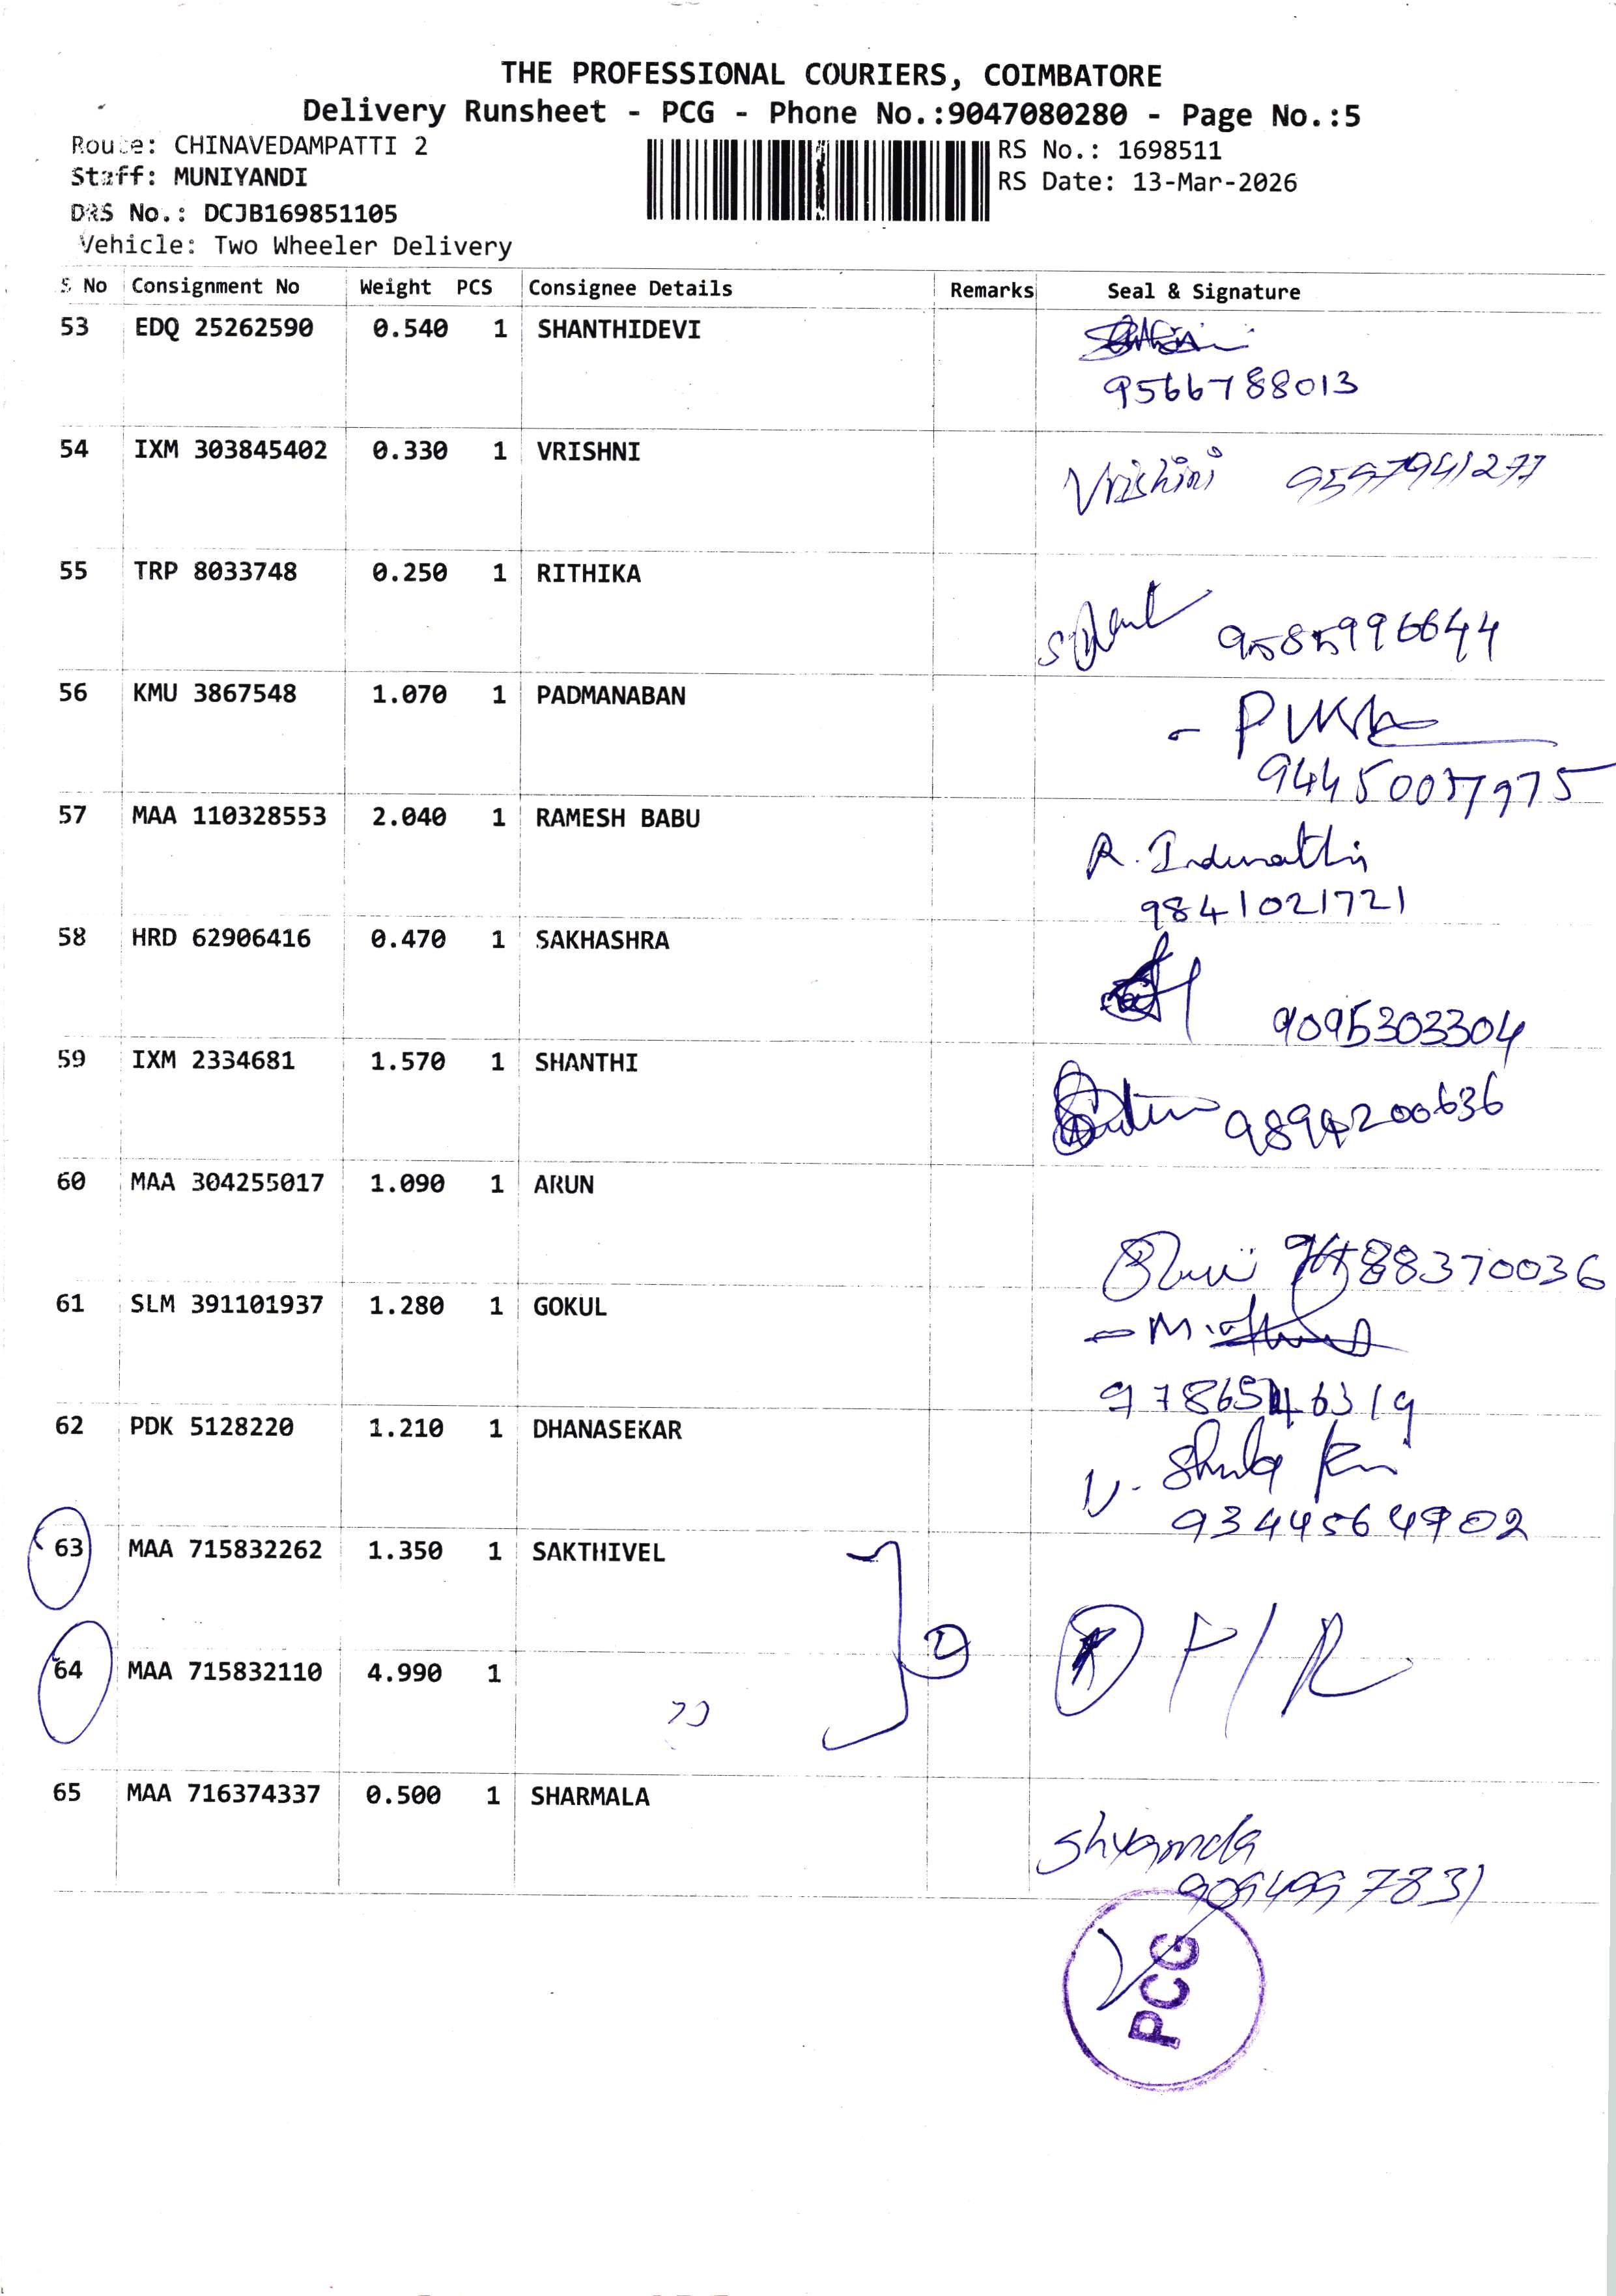 THE PROFESSIONAL COURIERS, COIMBATORE
Delivery Runsheet - PCG - Phone No.:9047080280 - Page No.:5
Route: CHINAVEDAMPATTI 2
RS No.: 1698511
Staff: MUNIYANDI
RS Date: 13-Mar-2026
DRS No.: DCJB169851105
Vehicle: Two Wheeler Delivery
S No Consignment No Weight PCS Consignee Details Remarks Seal & Signature
53 EDQ 25262590 0.540 1 SHANTHIDEVI
9566788013
54 IXM 303845402 0.330 1 VRISHNI
Vrishini 9597941277
55 TRP 8033748 0.250 1 RITHIKA
9585996644
56 KMU 3867548 1.070 1 PADMANABAN
57 MAA 110328553 2.040 1 RAMESH BABU
R. Indumathi
9841021721
58 HRD 62906416 0.470 1 SAKHASHRA
9095303304
59 IXM 2334681 1.570 1 SHANTHI
9894200636
60 MAA 304255017 1.090 1 ARUN
61 SLM 391101937 1.280 1 GOKUL
62 PDK 5128220 1.210 1 DHANASEKAR
63 MAA 715832262 1.350 1 SAKTHIVEL
64 MAA 715832110 4.990 1
F/R
65 MAA 716374337 0.500 1 SHARMALA
Shyamala
9094997831
PCG